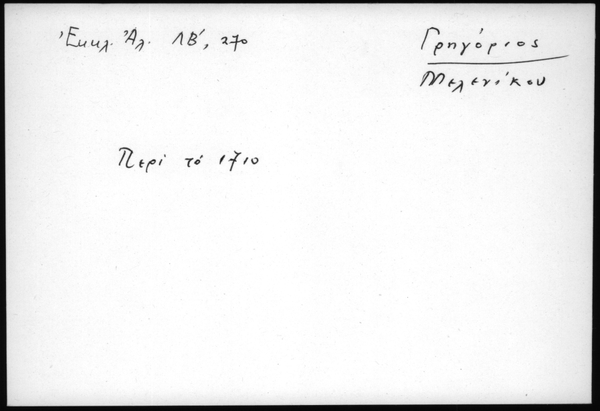 Ἐκκλ. Ἀλ. ΛΒ', 270
Γρηγόριος
Μελενίκου
Περί τό 1710